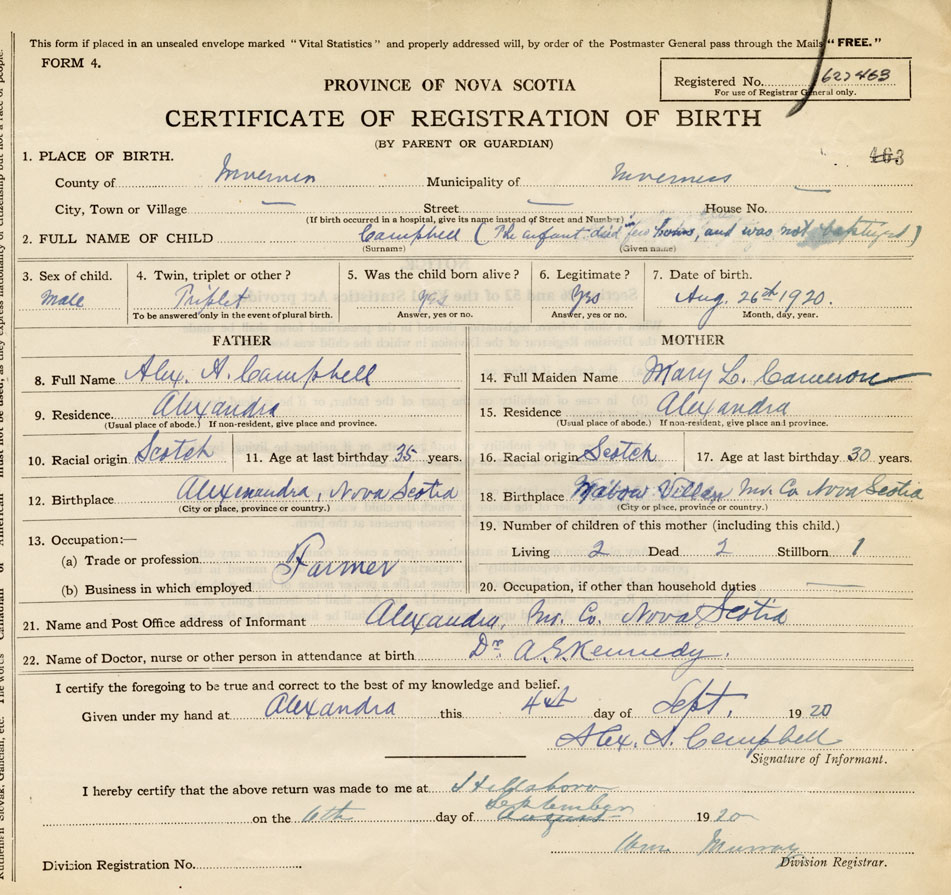 This form if placed in an unsealed envelope marked "Vital Statistics" and properly addressed will, by order of the Postmaster General pass through the Mails "FREE."
FORM 4.
Registered No. 627463
For use of Registrar General only.
PROVINCE OF NOVA SCOTIA
CERTIFICATE OF REGISTRATION OF BIRTH
(BY PARENT OR GUARDIAN)
463
1. PLACE OF BIRTH.
County of Inverness Municipality of Inverness —
City, Town or Village — Street — House No.
(If birth occurred in a hospital, give its name instead of Street and Number)
2. FULL NAME OF CHILD Campbell (The infant died two hours, and was not baptized)
(Surname) (Given name)
3. Sex of child. 4. Twin, triplet or other? 5. Was the child born alive? 6. Legitimate? 7. Date of birth.
Male Triplet Yes Yes Aug. 26th 1920.
To be answered only in the event of plural birth. Answer, yes or no. Answer, yes or no. Month, day, year.
FATHER MOTHER
8. Full Name Alex. A. Campbell 14. Full Maiden Name Mary L. Cameron
9. Residence. Alexandra 15. Residence Alexandra
(Usual place of abode.) If non-resident, give place and province. (Usual place of abode.) If non-resident, give place and province.
10. Racial origin Scotch 11. Age at last birthday 35 years. 16. Racial origin Scotch 17. Age at last birthday 30 years.
12. Birthplace Alexandra, Nova Scotia 18. Birthplace Mabou Inv. Co. Nova Scotia
(City or place, province or country.) (City or place, province or country.)
13. Occupation:— 19. Number of children of this mother (including this child.)
(a) Trade or profession Farmer Living 2 Dead 2 Stillborn 1
(b) Business in which employed 20. Occupation, if other than household duties —
21. Name and Post Office address of Informant Alexandra, Inv. Co. Nova Scotia
22. Name of Doctor, nurse or other person in attendance at birth Dr. A. E. Kennedy.
I certify the foregoing to be true and correct to the best of my knowledge and belief.
Given under my hand at Alexandra this 4th day of Sept. 1920
Alex. A. Campbell
Signature of Informant.
I hereby certify that the above return was made to me at Hillsboro
September
on the 6th day of August 1920
Murray
Division Registrar.
Division Registration No.